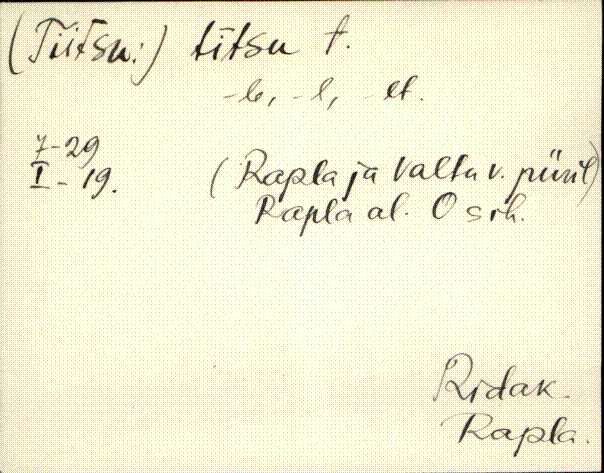 (Tiitsu:) titsu t.
-le, -l, -lt.
7-29
I - 19.
(Rapla ja Valtu v. piiril)
Rapla al. Osrh.
Ridak.
Rapla.